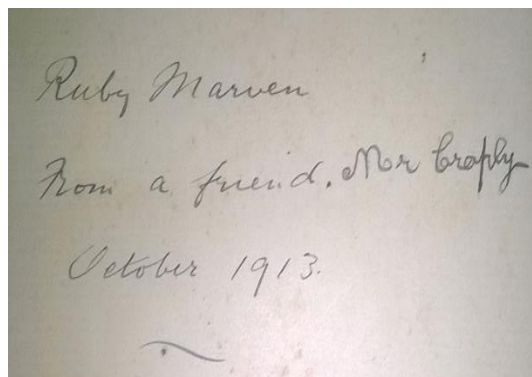 Ruby Marven
From a friend. Mr
October 1913.